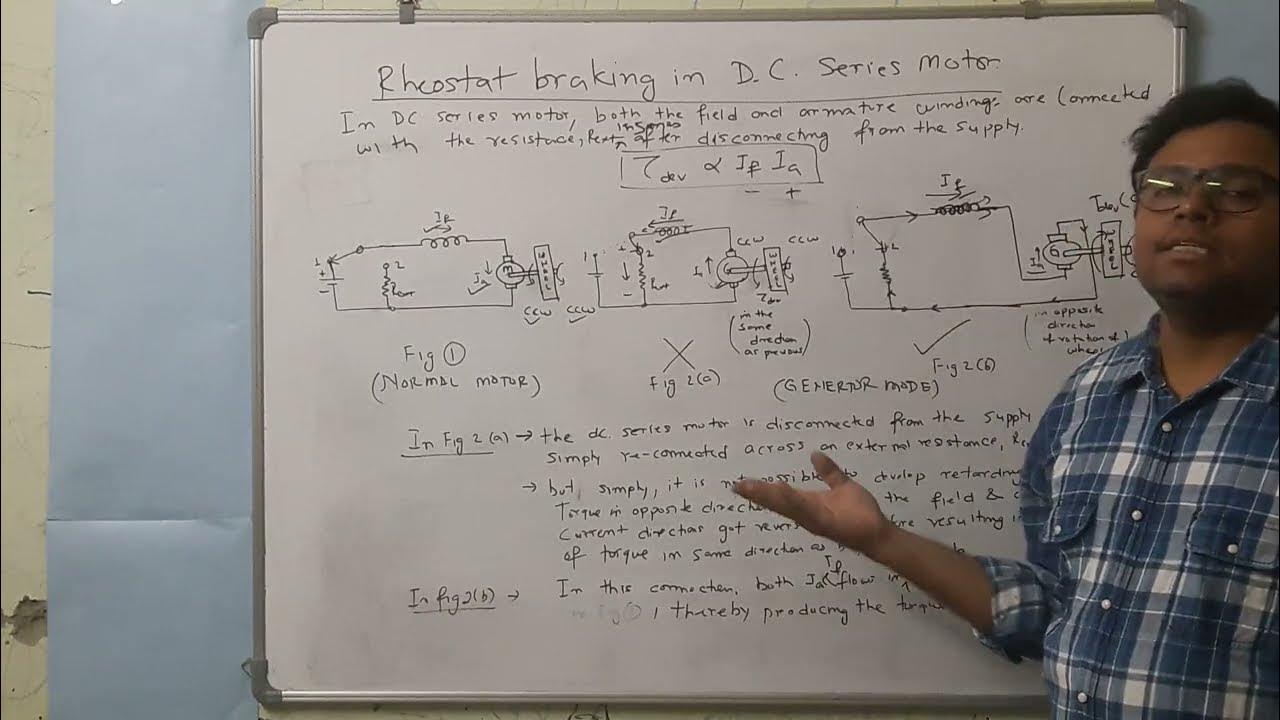 Rheostat braking in D.C. Series Motor
In DC series motor, both the field and armature windings are connected
with the resistance, Rext in series after disconnecting from the supply.
τdev ∝ If Ia
− +
If
1
2
+
−
Rext
Ia
M
WHEEL
CCW CCW
Fig ①
(NORMAL MOTOR)
If
1
2
Rext
−
Ia
CCW CCW
WHEEL
τdev
(in the
same
direction
as previous)
Fig 2(a)
If
1
2
Ia
G
WHEEL
Tdev
(in opposite
direction
of rotation of
wheel)
Fig 2(b)
(GENERTOR MODE)
In Fig 2(a) → the dc. series motor is disconnected from the supply
simply re-connected across an external resistance,
→ but, simply, it is not possible to develop retarding
Torque in opposite the field &
Current got resulting
of torque in same direction as
In fig 2(b) → In this connection, both Ia If flow in
, thereby producing the torque